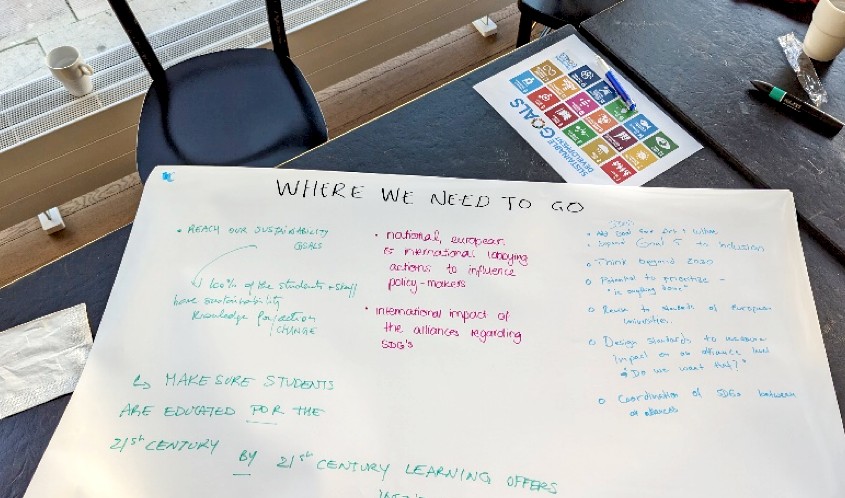 WHERE WE NEED TO GO
• REACH OUR SUSTAINABILITY
GOALS
↳ 100% of the students + staff
have sustainability
knowledge for action
/ CHANGE
↳ MAKE SURE STUDENTS
ARE EDUCATED FOR THE
21st CENTURY BY 21st CENTURY LEARNING OFFERS
• national, european
& international lobbying
actions to influence
policy-makers
• International impact of
the alliances regarding
SDG's
SDGs
Expand Goal 5 to inclusion
Think beyond 2030
Potential to prioritize -
"is anything done"
of European
Universities.
Design standards to measure
impact on an alliance level
"Do we want that?"
Coordination of SDGs between
alliances
SUSTAINABLE
DEVELOPMENT
GOALS